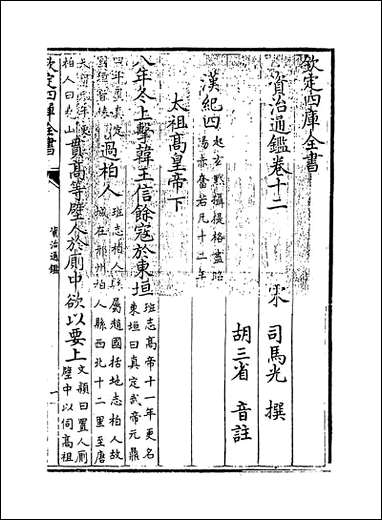 欽定四庫全書
資治通鑑卷十二
宋 司馬光 撰
胡三省 音註
漢紀四
起玄黓攝提格盡昭
陽赤奮若凡十二年
太祖高皇帝下
八年冬上擊韓王信餘寇於東垣
班志高帝十一年更名
東垣曰真定武帝元鼎
四年置真定
過柏人
班志柏人縣屬趙國括地志柏人故
城在邢州柏人縣西北十二里至唐
柏人曰堯山
貫高等壁人於厠中欲以要上
文穎曰置人厠
壁中以伺高祖
欽定四庫全書
資治通鑑